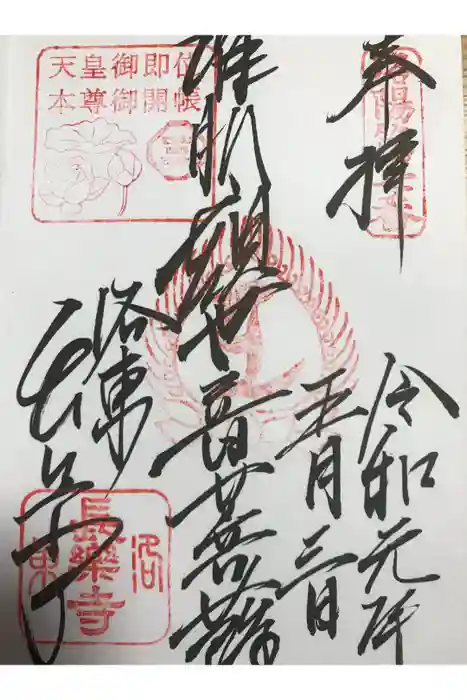 奉拝
令和元年
五月三日
准胝観世音菩薩
洛東
長楽寺
天皇御即位
本尊御開帳
洛東
長樂寺